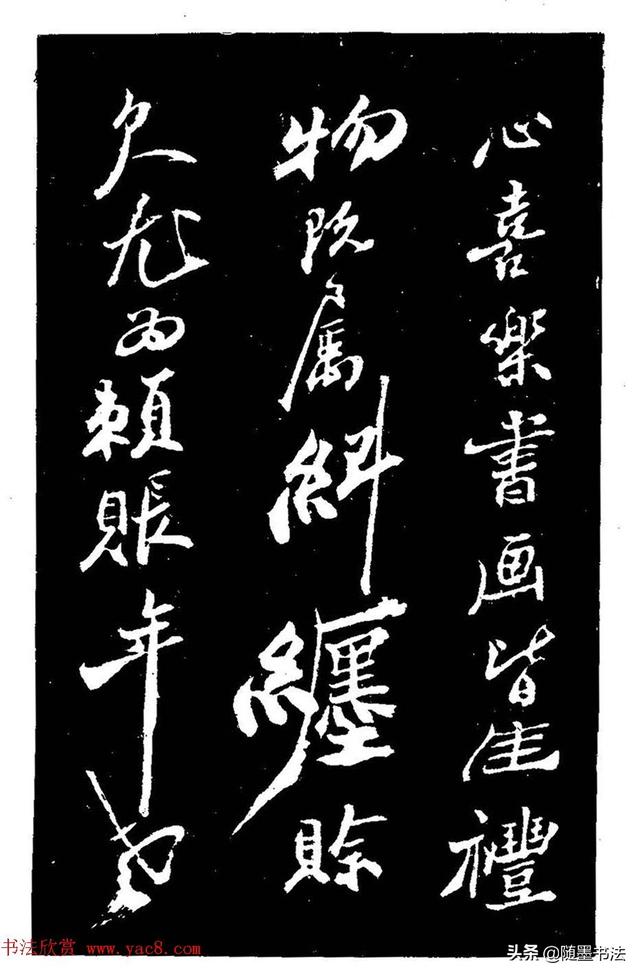 心喜樂書画皆佳禮
物既属糾纏賒
欠尤为賴賬年老
书法欣赏 www.yac8.com
头条 @随墨书法